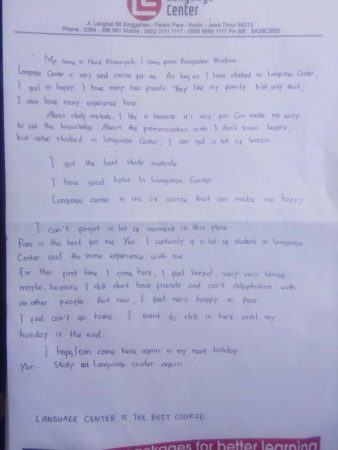 Language
Center
Jl. Langkat 88 Singgahan - Pelem Pare - Kediri - Jawa Timur 64213
Phone : 0354 - 398 581 Mobile : 0852 3111 1117 - 0856 8888 1117 Pin BB : 5A38CB55
My name is Mural I come from Bangkalan Madura.
Language Center is very good course for me. As long as I have studied in Language Center,
I feel so happy. I have many new friends. They like my family. Not only that,
I also have many experience here.
About study metode, I like it because it's very fun can make me easy
to get the knowledge. About the pronunciation with I don't know before,
but after studied in Language Center, I can get a lot of lesson
I got the best study metode
I have good tutor in Language Center
Language center is one of course that can make me happy
I can't forget a lot of moment in this place
Pare is the best for me. Yes. I certainly if a lot of student in language
Center feel the same experience with me.
For the first time I come here, I feel bored, very very bored.
maybe, because I still don't have friends and can't adaptation with
an other people. But now, I feel very happy in Pare
I feel can't go home. I want to still in here until my
holiday is the end.
I hope, I can come here again in my next holiday.
Yes... Study at Language center again.
LANGUAGE CENTER IS THE BEST COURSE
packages for better learning